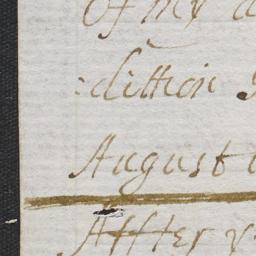 of my
:dittion
August
Affter